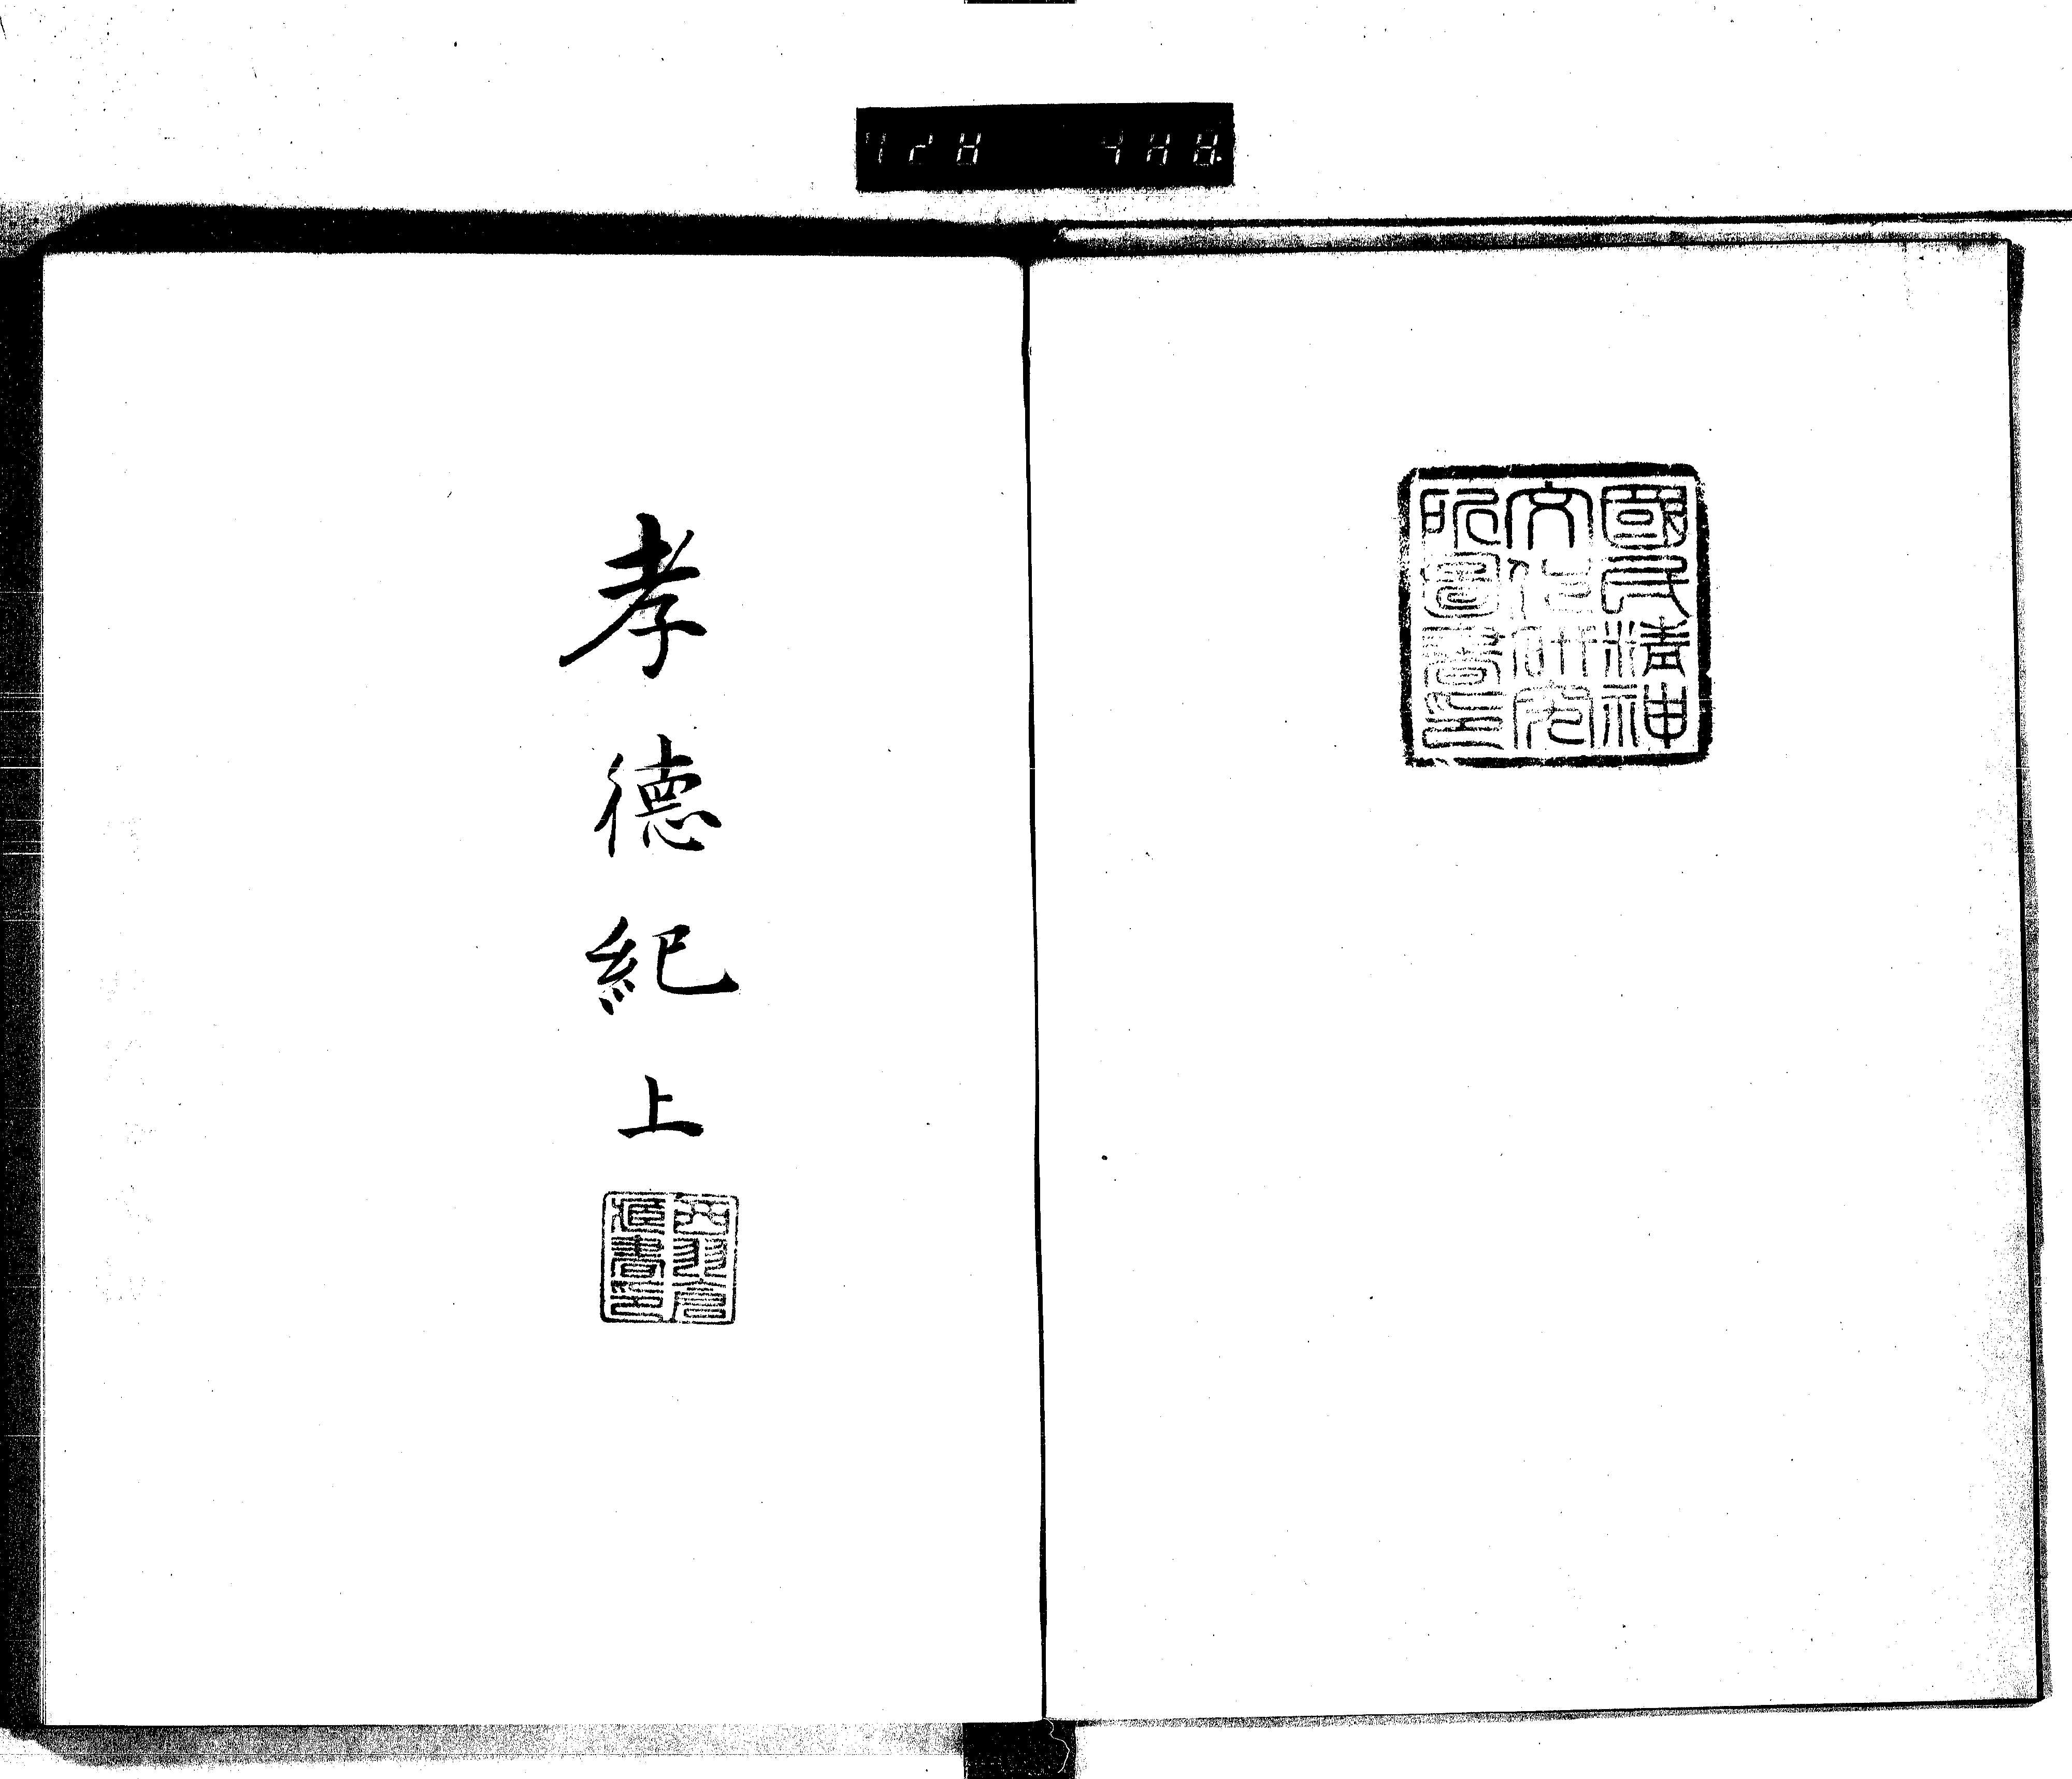 國民精神
文化研究
所圖書印
孝德紀上
藏書印